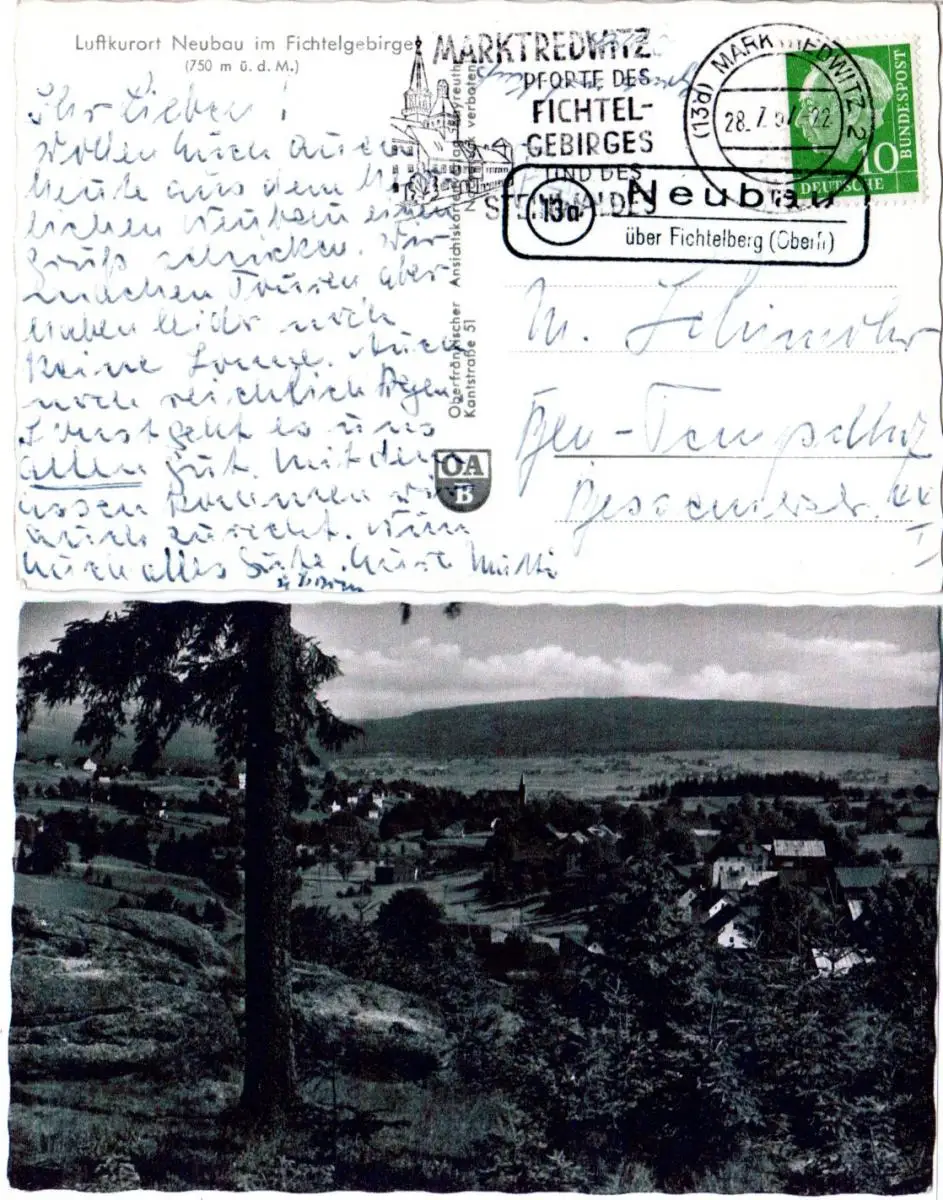 Luftkurort Neubau im Fichtelgebirge
(750 m ü. d. M.)
Ihr Lieben!
Wollen Euch auch
heute aus dem
lichen Neubau einen
Gruß schicken. Wir
machen Touren aber
haben leider noch
keine Sonne. Auch
noch reichlich Regen
Sonst geht es uns
allen gut. Mit dem
essen kommen wir
auch zurecht. Nun
Euch alles Gute. Eure Mutti
Oberfränkischer Ansichtskartenverlag Bayreuth
Kantstraße 51
Nachdruck verboten
OA
B
MARKTREDWITZ
PFORTE DES
FICHTEL-
GEBIRGES
UND DES
STEINWALDES
(13a) MARKTREDWITZ 2
28.7.57.-22
10
DEUTSCHE
BUNDESPOST
13a
Neubau
über Fichtelberg (Oberfr)
Bln-Tempelhof